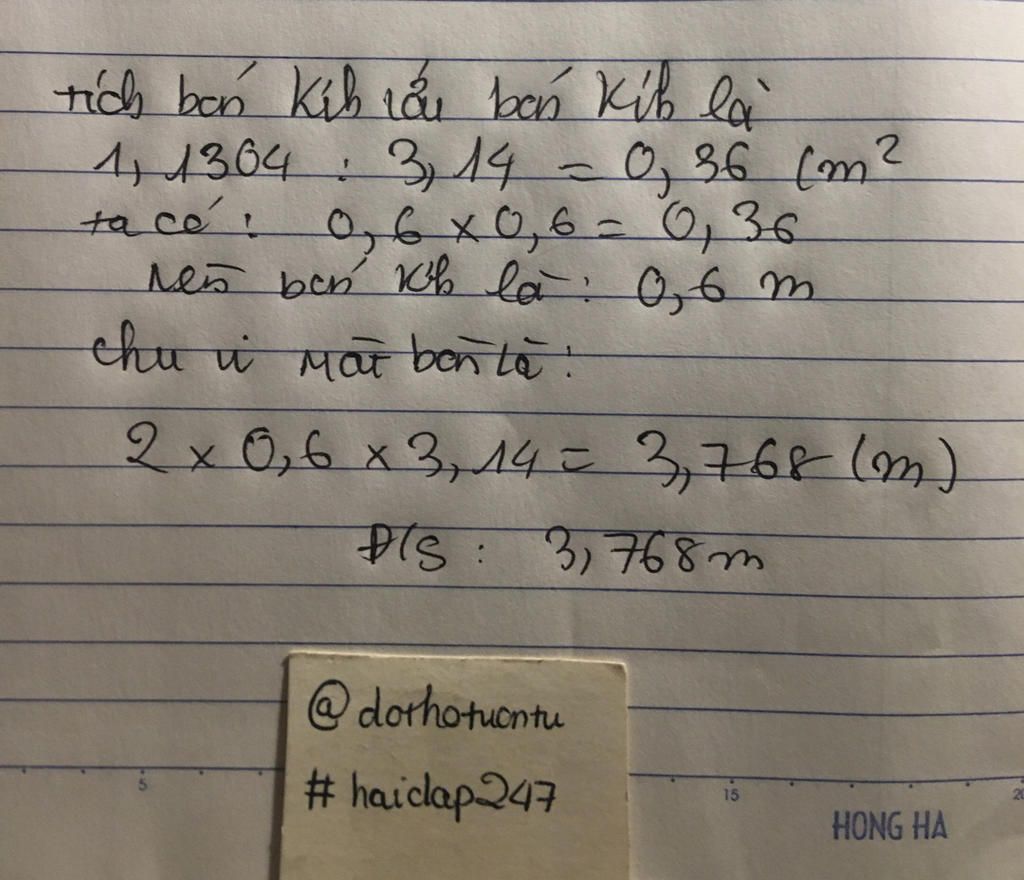 tích bán kính nhân bán kính là
1,1304 : 3,14 = 0,36 (m²
ta có : 0,6 x 0,6 = 0,36
Nên bán kính là : 0,6 m
chu vi mặt bàn là :
2 x 0,6 x 3,14 = 3,768 (m)
Đ/S : 3,768 m
@dorhotuontu
# haiclap247
5
15
20
HONG HA